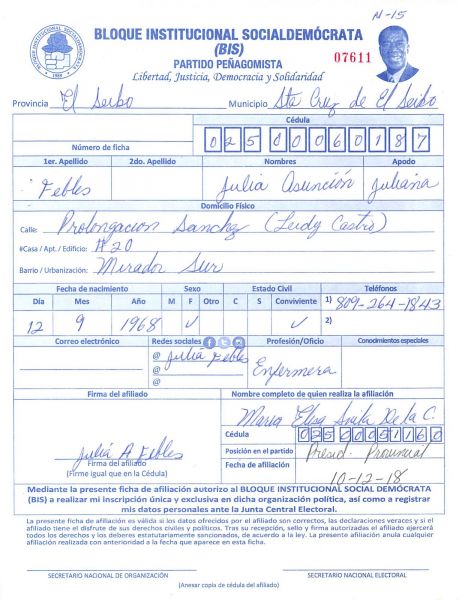 N-15
BLOQUE INSTITUCIONAL SOCIALDEMÓCRATA
(BIS)
07611
PARTIDO PEÑAGOMISTA
Libertad, Justicia, Democracia y Solidaridad
Provincia El Seibo Municipio Sta Cruz de El Seibo
Cédula
Número de ficha 02500006187
1er. Apellido 2do. Apellido Nombres Apodo
Febles Julia Asunción Juliana
Domicilio Físico
Calle: Prolongacion Sanchez (Leidy Castro)
#Casa / Apt. / Edificio: #20
Barrio / Urbanización: Mirador Sur
Fecha de nacimiento Sexo Estado Civil Teléfonos
Día Mes Año M F Otro C S Conviviente 1) 809-264-1843
12 9 1968 ✓ ✓ 2)
Correo electrónico Redes sociales Profesión/Oficio Conocimientos especiales
@ Julia Febles
@ Enfermera
@
Firma del afiliado Nombre completo de quien realiza la afiliación
Maria Elisa De la C.
Cédula
Julia A Febles Posición en el partido Presid. Provincial
Firma del afiliado
(Firme igual que en la Cédula) Fecha de afiliación 10-12-18
Mediante la presente ficha de afiliación autorizo al BLOQUE INSTITUCIONAL SOCIAL DEMÓCRATA
(BIS) a realizar mi inscripción única y exclusiva en dicha organización política, así como a registrar
mis datos personales ante la Junta Central Electoral.
La presente ficha de afiliación es válida si los datos ofrecidos por el afiliado son correctos, las declaraciones veraces y si el
afiliado tiene el disfrute de sus derechos civiles y políticos. Tras su recepción, sello y firma autorizadas el afiliado ejercerá
todos los derechos y los deberes estatutariamente sancionados, de acuerdo a la ley. La presente afiliación anula cualquier
afiliación realizada con anterioridad a la fecha que aparece en esta ficha.
SECRETARIO NACIONAL DE ORGANIZACIÓN SECRETARIO NACIONAL ELECTORAL
(Anexar copia de cédula del afiliado)